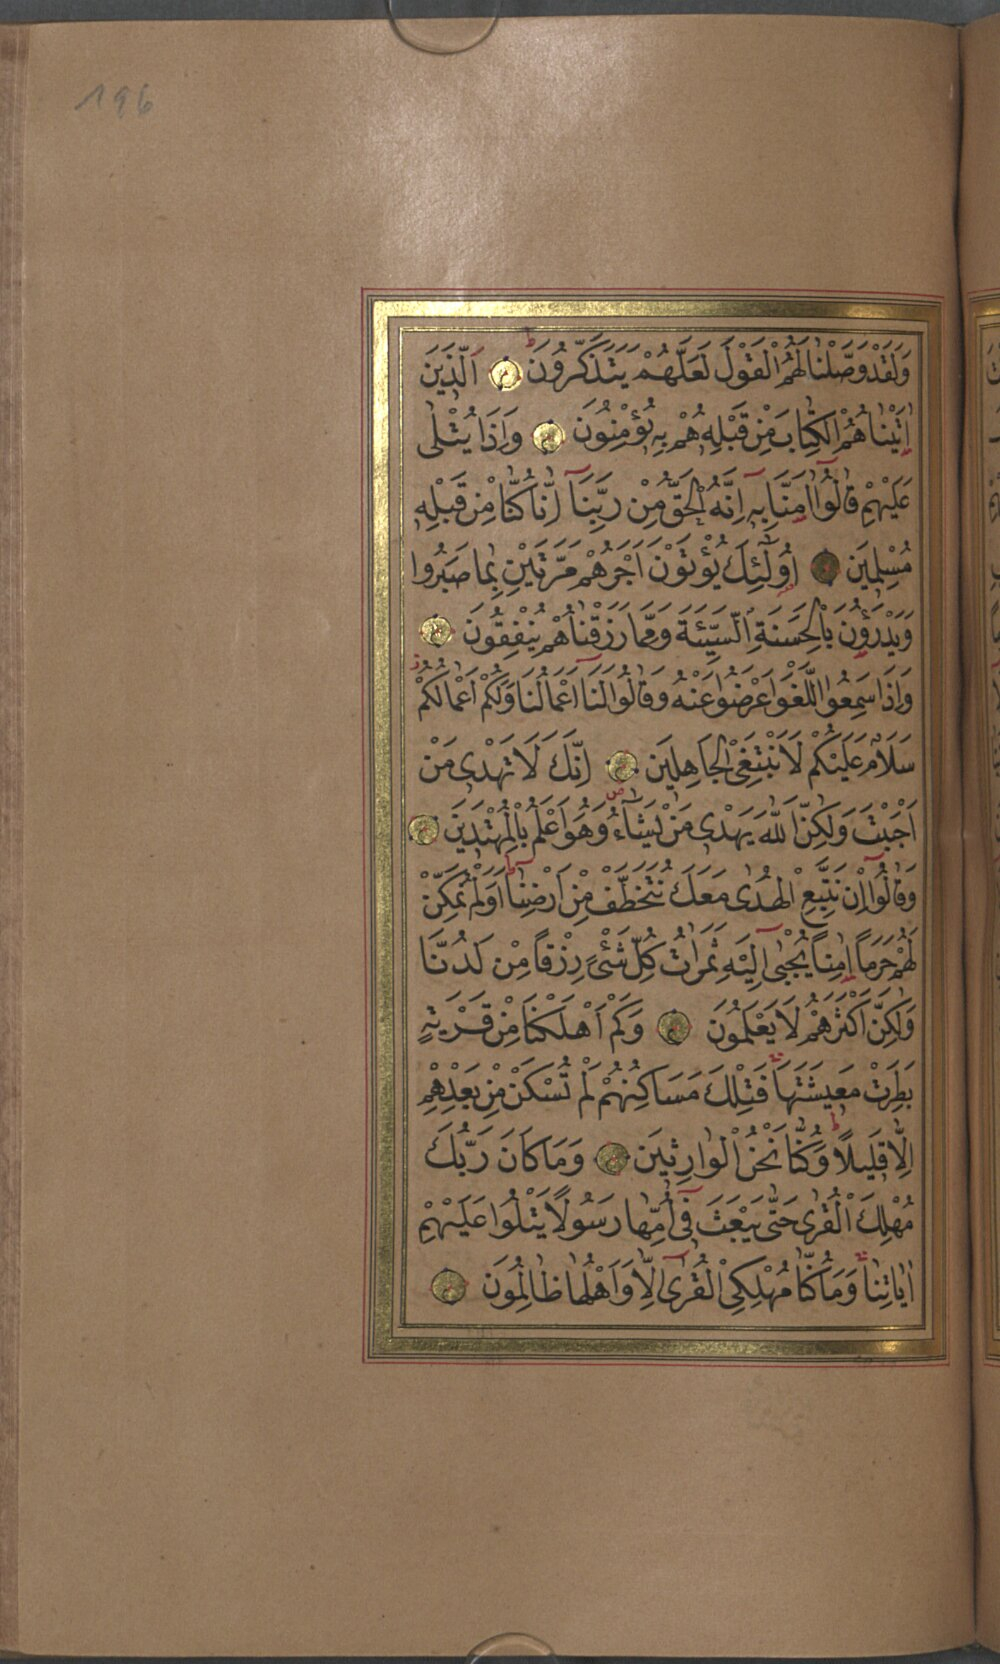 196
وَلَقَدْ وَصَّلْنَا لَهُمُ الْقَوْلَ لَعَلَّهُمْ يَتَذَكَّرُونَ اَلَّذِينَ
اٰتَيْنَاهُمُ الْكِتَابَ مِنْ قَبْلِهِ هُمْ بِهِ يُؤْمِنُونَ وَاِذَا يُتْلٰى
عَلَيْهِمْ قَالُوا اٰمَنَّا بِهِ اِنَّهُ الْحَقُّ مِنْ رَبِّنَا اِنَّا كُنَّا مِنْ قَبْلِهِ
مُسْلِمِينَ اُولٰٓئِكَ يُؤْتَوْنَ اَجْرَهُمْ مَرَّتَيْنِ بِمَا صَبَرُوا
وَيَدْرَؤُنَ بِالْحَسَنَةِ السَّيِّئَةَ وَمِمَّا رَزَقْنَاهُمْ يُنْفِقُونَ
وَاِذَا سَمِعُوا اللَّغْوَ اَعْرَضُوا عَنْهُ وَقَالُوا لَنَا اَعْمَالُنَا وَلَكُمْ اَعْمَالُكُمْ
سَلَامٌ عَلَيْكُمْ لَا نَبْتَغِي الْجَاهِلِينَ اِنَّكَ لَا تَهْدِى مَنْ
اَحْبَبْتَ وَلٰكِنَّ اللّٰهَ يَهْدِى مَنْ يَشَٓاءُ وَهُوَ اَعْلَمُ بِالْمُهْتَدِينَ
وَقَالُوا اِنْ نَتَّبِعِ الْهُدٰى مَعَكَ نُتَخَطَّفْ مِنْ اَرْضِنَا اَوَلَمْ نُمَكِّنْ
لَهُمْ حَرَمًا اٰمِنًا يُجْبٰى اِلَيْهِ ثَمَرَاتُ كُلِّ شَىْءٍ رِزْقًا مِنْ لَدُنَّا
وَلٰكِنَّ اَكْثَرَهُمْ لَا يَعْلَمُونَ وَكَمْ اَهْلَكْنَا مِنْ قَرْيَةٍ
بَطِرَتْ مَعِيشَتَهَا فَتِلْكَ مَسَاكِنُهُمْ لَمْ تُسْكَنْ مِنْ بَعْدِهِمْ
اِلَّا قَلِيلًا وَكُنَّا نَحْنُ الْوَارِثِينَ وَمَا كَانَ رَبُّكَ
مُهْلِكَ الْقُرٰى حَتّٰى يَبْعَثَ فِى اُمِّهَا رَسُولًا يَتْلُوا عَلَيْهِمْ
اٰيَاتِنَا وَمَا كُنَّا مُهْلِكِى الْقُرٰى اِلَّا وَاَهْلُهَا ظَالِمُونَ